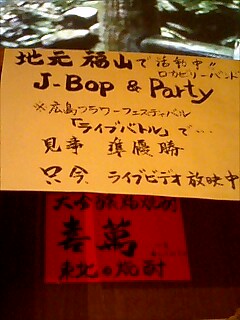 地元福山で活動中!!
ロカビリーバンド
J-Bop & Party
※広島フラワーフェスティバル
「ライブバトル」で…
見事 準優勝
只今 ライブビデオ放映中
大吟醸粕焼酎
喜萬
東北の焼酎